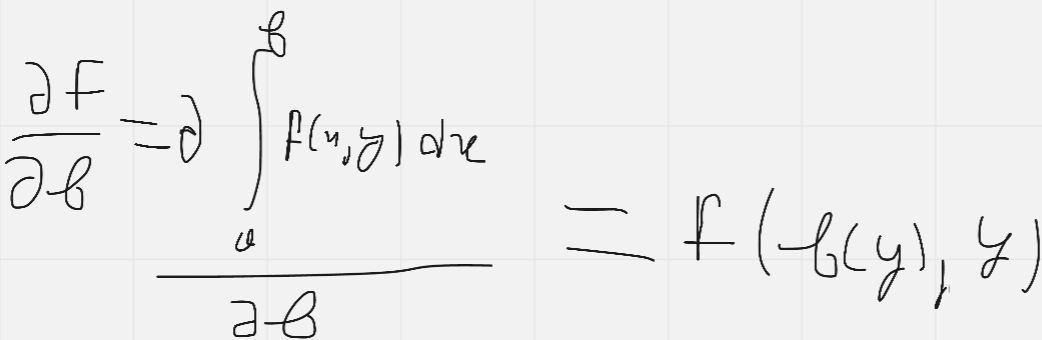 ∂F/∂b = ∂ ∫_a^b f(x,y) dx / ∂b = f(b(y), y)